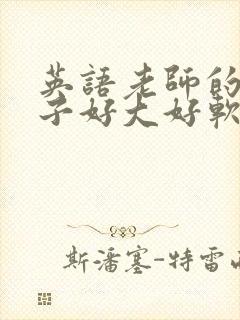 英語老師的
子好大好軟
斯潘塞-特雷